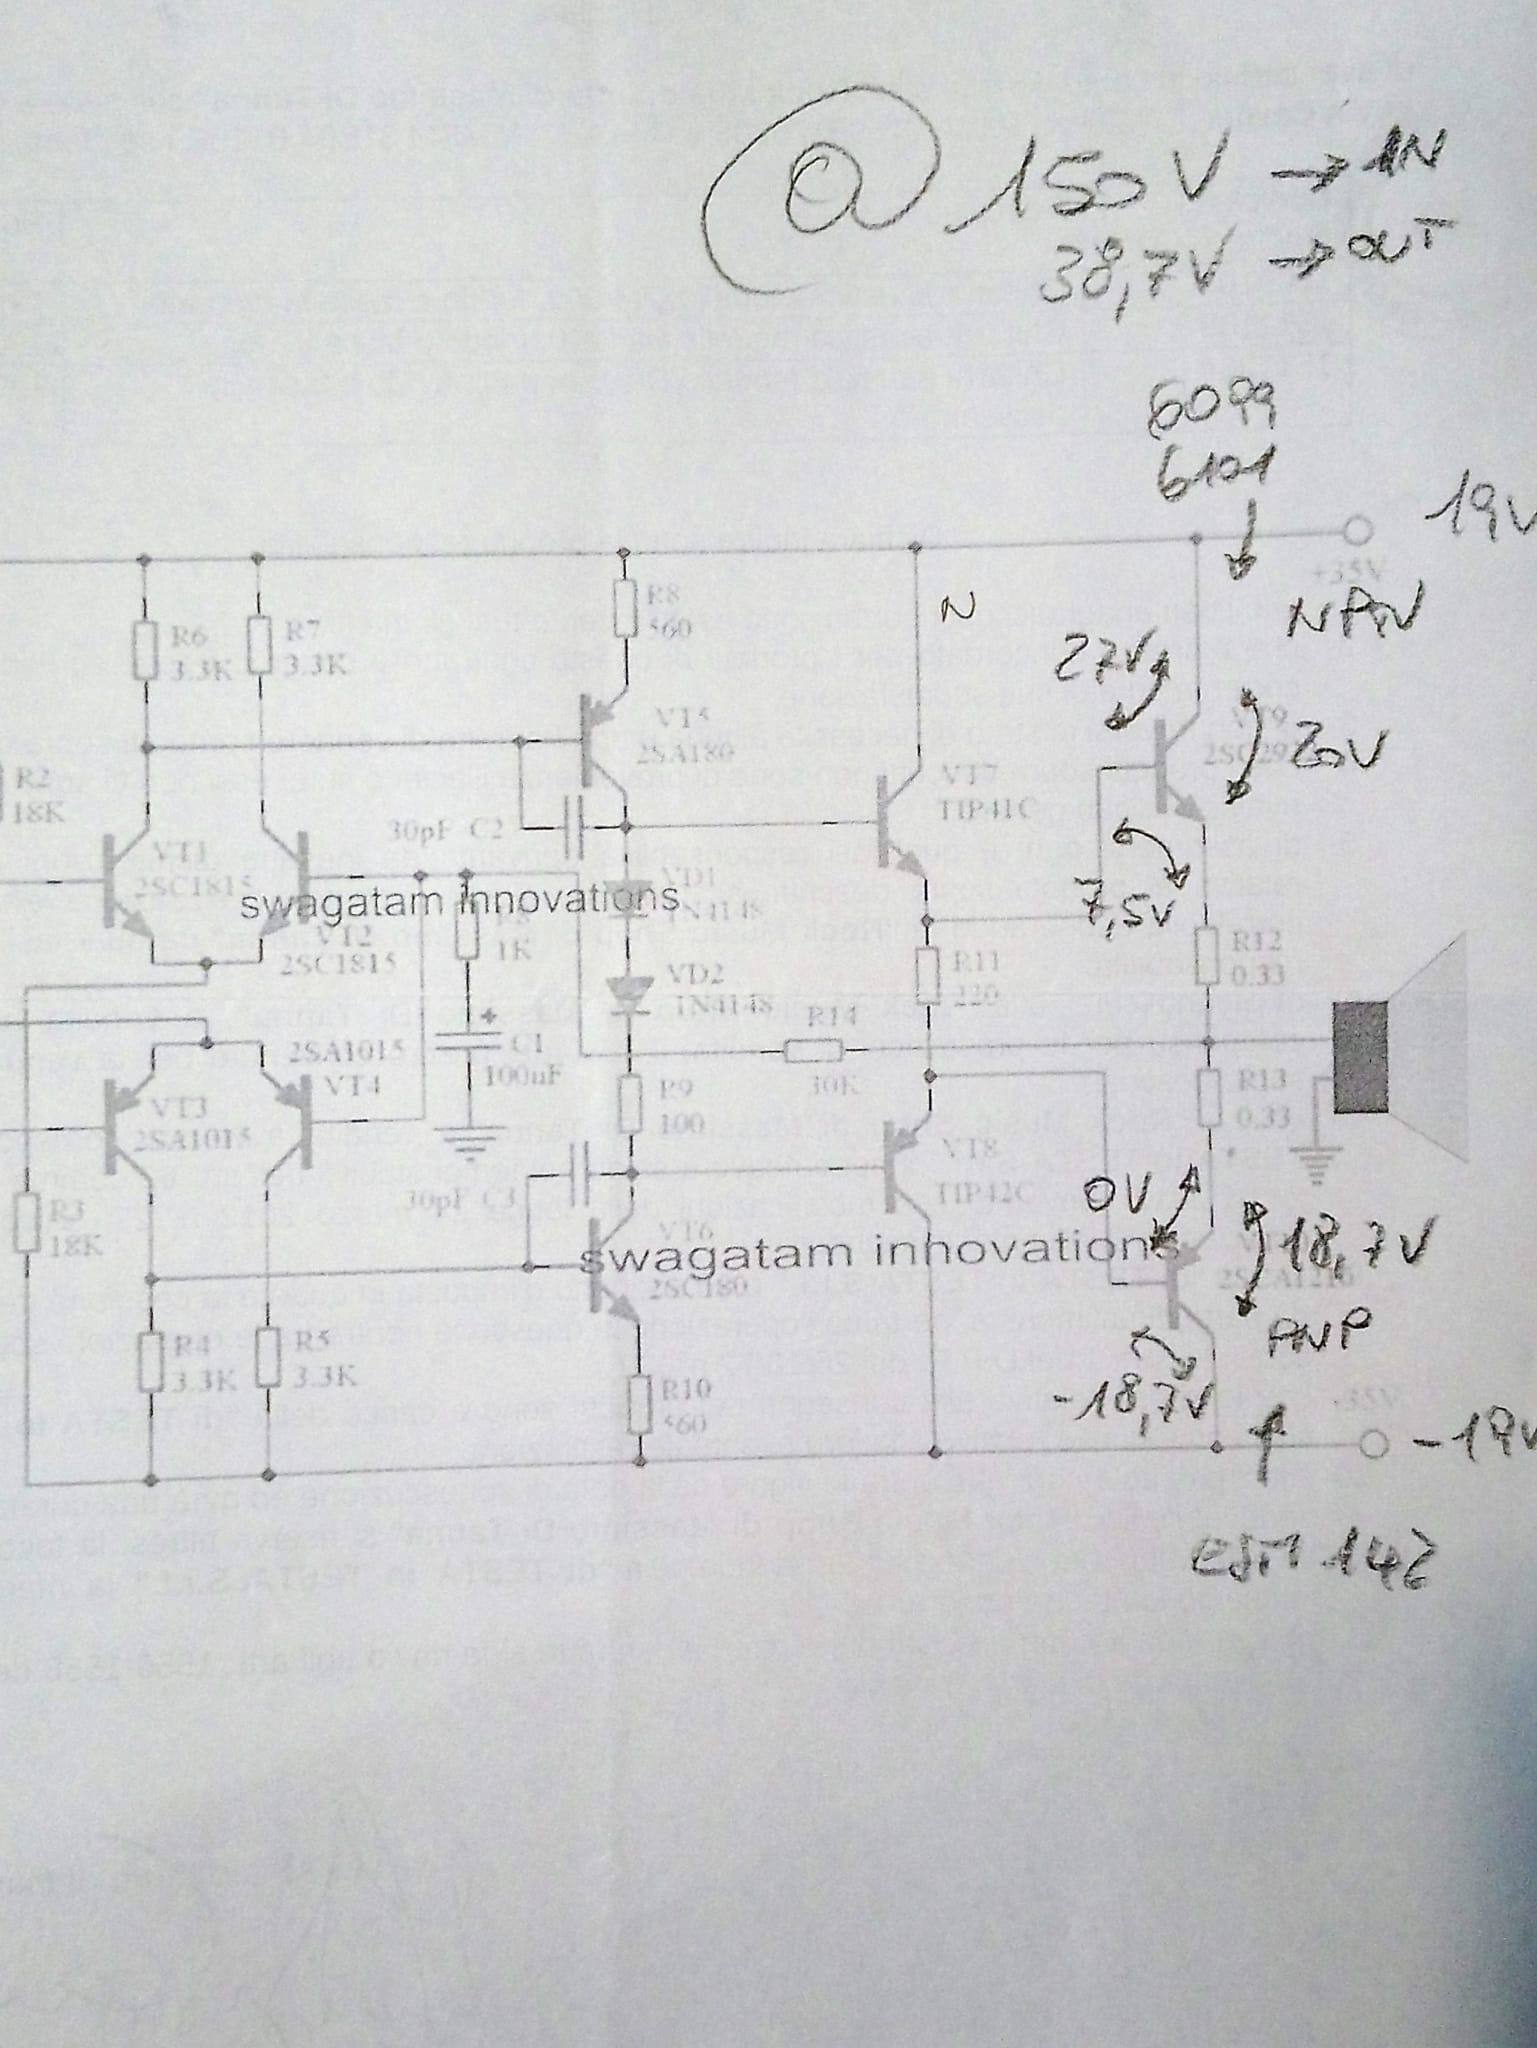 @ 150V → IN
38,7V → OUT
6099
6101
19V
+35V
NPN
N
R8
560
R6
3.3K
R7
3.3K
27V
VT5
2SA180
VT9
20V
R2
18K
VT7
TIP41C
30pF C2
VT1
2SC1815
VD1
1N4148
7,5V
swagatam innovations
1K
VT2
2SC1815
R12
0.33
R11
220
VD2
1N4148
R14
30K
2SA1015
VT4
C1
100uF
R9
100
R13
0.33
VT3
2SA1015
VT8
TIP42C
30pF C3
0V
R3
18K
VT6
2SC180
swagatam innovations
18,7V
PNP
R4
3.3K
R5
3.3K
R10
560
-18,7V
-35V
-19V